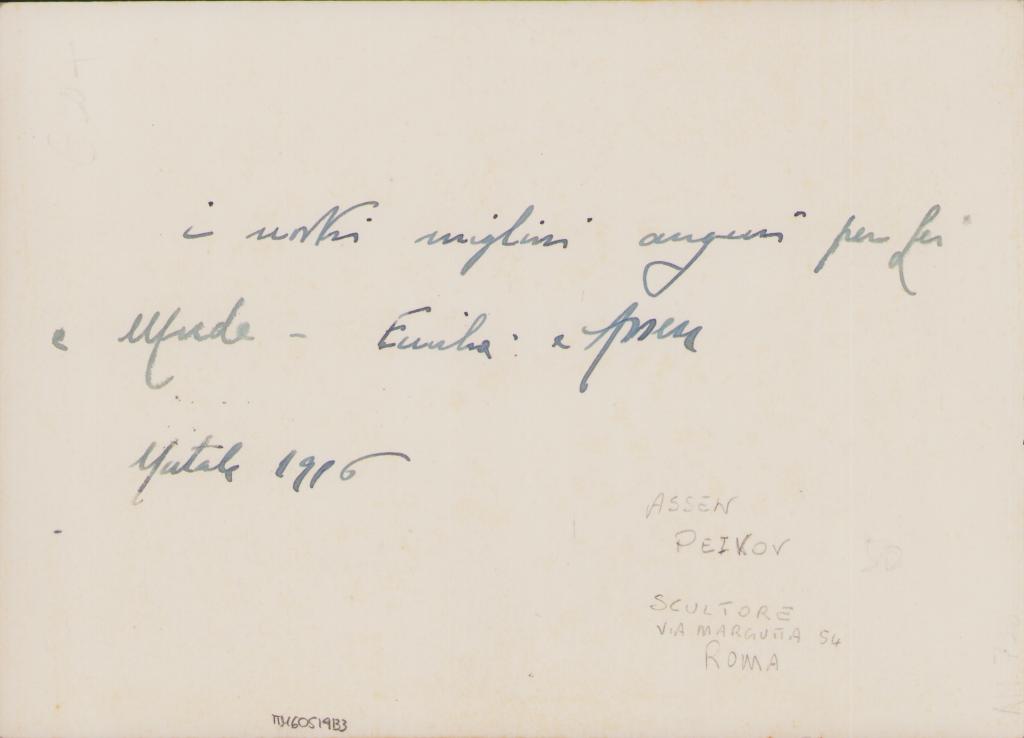 i nostri migliori auguri per Lei
e Alfredo - Emilia e Assen
Natale 1956
ASSEN
PEIKOV
SCULTORE
VIA MARGUTTA 54
ROMA
50